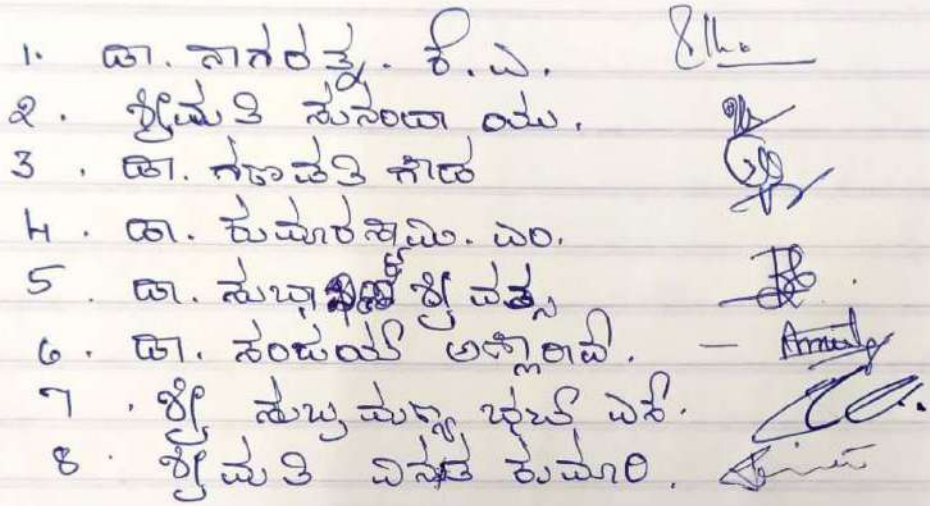 1. ಡಾ. ನಾಗರತ್ನ. ಕೆ.ಎ.
2. ಶ್ರೀಮತಿ ಸುನಂದಾ ಯು.
3. ಡಾ. ಗಣಪತಿ ಗೌಡ
4. ಡಾ. ಕುಮಾರಸ್ವಾಮಿ. ಎಂ.
5. ಡಾ. ಸುಬ್ರಾ ಶ್ರೀವತ್ಸ
6. ಡಾ. ಸಂಜಯ್ ಅಣ್ಣಾರಾವ್. -
7. ಶ್ರೀ ಸುಬ್ರಮಣ್ಯ ಭಟ್ ಎಸ್.
8. ಶ್ರೀಮತಿ ವಿನುತ ಕುಮಾರಿ.